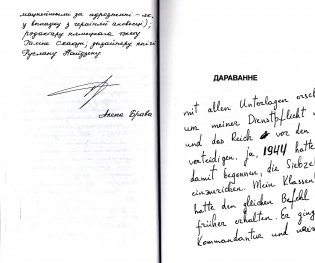 мацнейшымі за адрозненні – як,
у выпадку з гераіняй аповесці);
рэдактару нямецкага тэксту
Галіне Скакун; дызайнеру кнігі
Руслану Найдзену.
Алена Брава
ДАРАВАННЕ
mit allen Unterlagen ersch
um meiner Dienstpflicht
und das Reich vor den
verteidigen. ja, 1944 hatte
damit begonnen, die Siebze
einzuziehen. Mein Klassen
hatte den gleichen Befehl
früher erhalten. Er ging
Kommandantur und